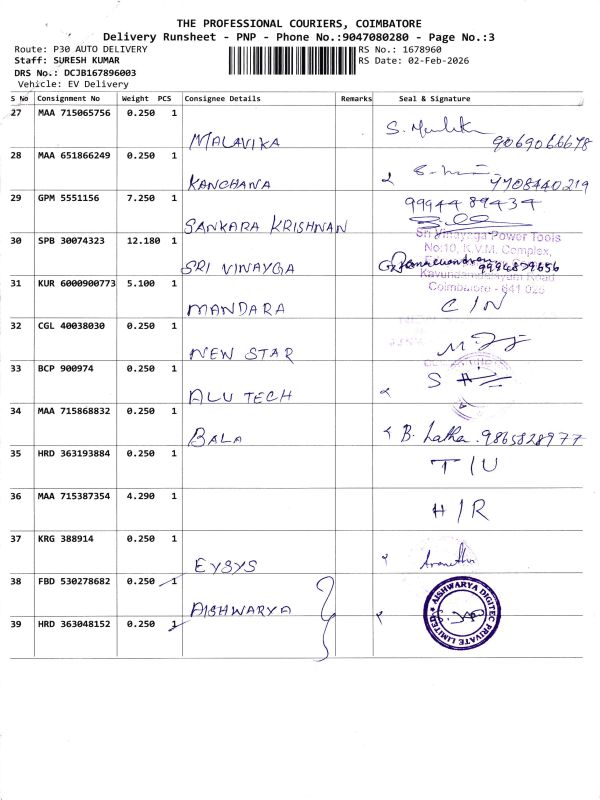 THE PROFESSIONAL COURIERS, COIMBATORE
Delivery Runsheet - PNP - Phone No.:9047080280 - Page No.:3
Route: P30 AUTO DELIVERY
RS No.: 1678960
Staff: SURESH KUMAR
RS Date: 02-Feb-2026
DRS No.: DCJB167896003
Vehicle: EV Delivery
S No Consignment No Weight PCS Consignee Details Remarks Seal & Signature
27 MAA 715065756 0.250 1
MALAVIKA 9069066678
28 MAA 651866249 0.250 1
KANCHANA 7708440219
29 GPM 5551156 7.250 1 9994489434
SANKARA KRISHNAN
Sri Vinayaga Power Tools
30 SPB 30074323 12.180 1 No:10, K.V.M. Complex,
SRI VINAYGA 9994879656
Road
31 KUR 6000900773 5.100 1 Coimbatore - 641 025
MANDARA C/N
32 CGL 40038030 0.250 1
NEW STAR
33 BCP 900974 0.250 1
ALU TECH
34 MAA 715868832 0.250 1
BALA B. Latha. 9865828977
35 HRD 363193884 0.250 1
T/U
36 MAA 715387354 4.290 1
H/R
37 KRG 388914 0.250 1
EYSYS
38 FBD 530278682 0.250 1
AISHWARYA
AISHWARYA DIGITEC PRIVATE LIMITED
39 HRD 363048152 0.250 1